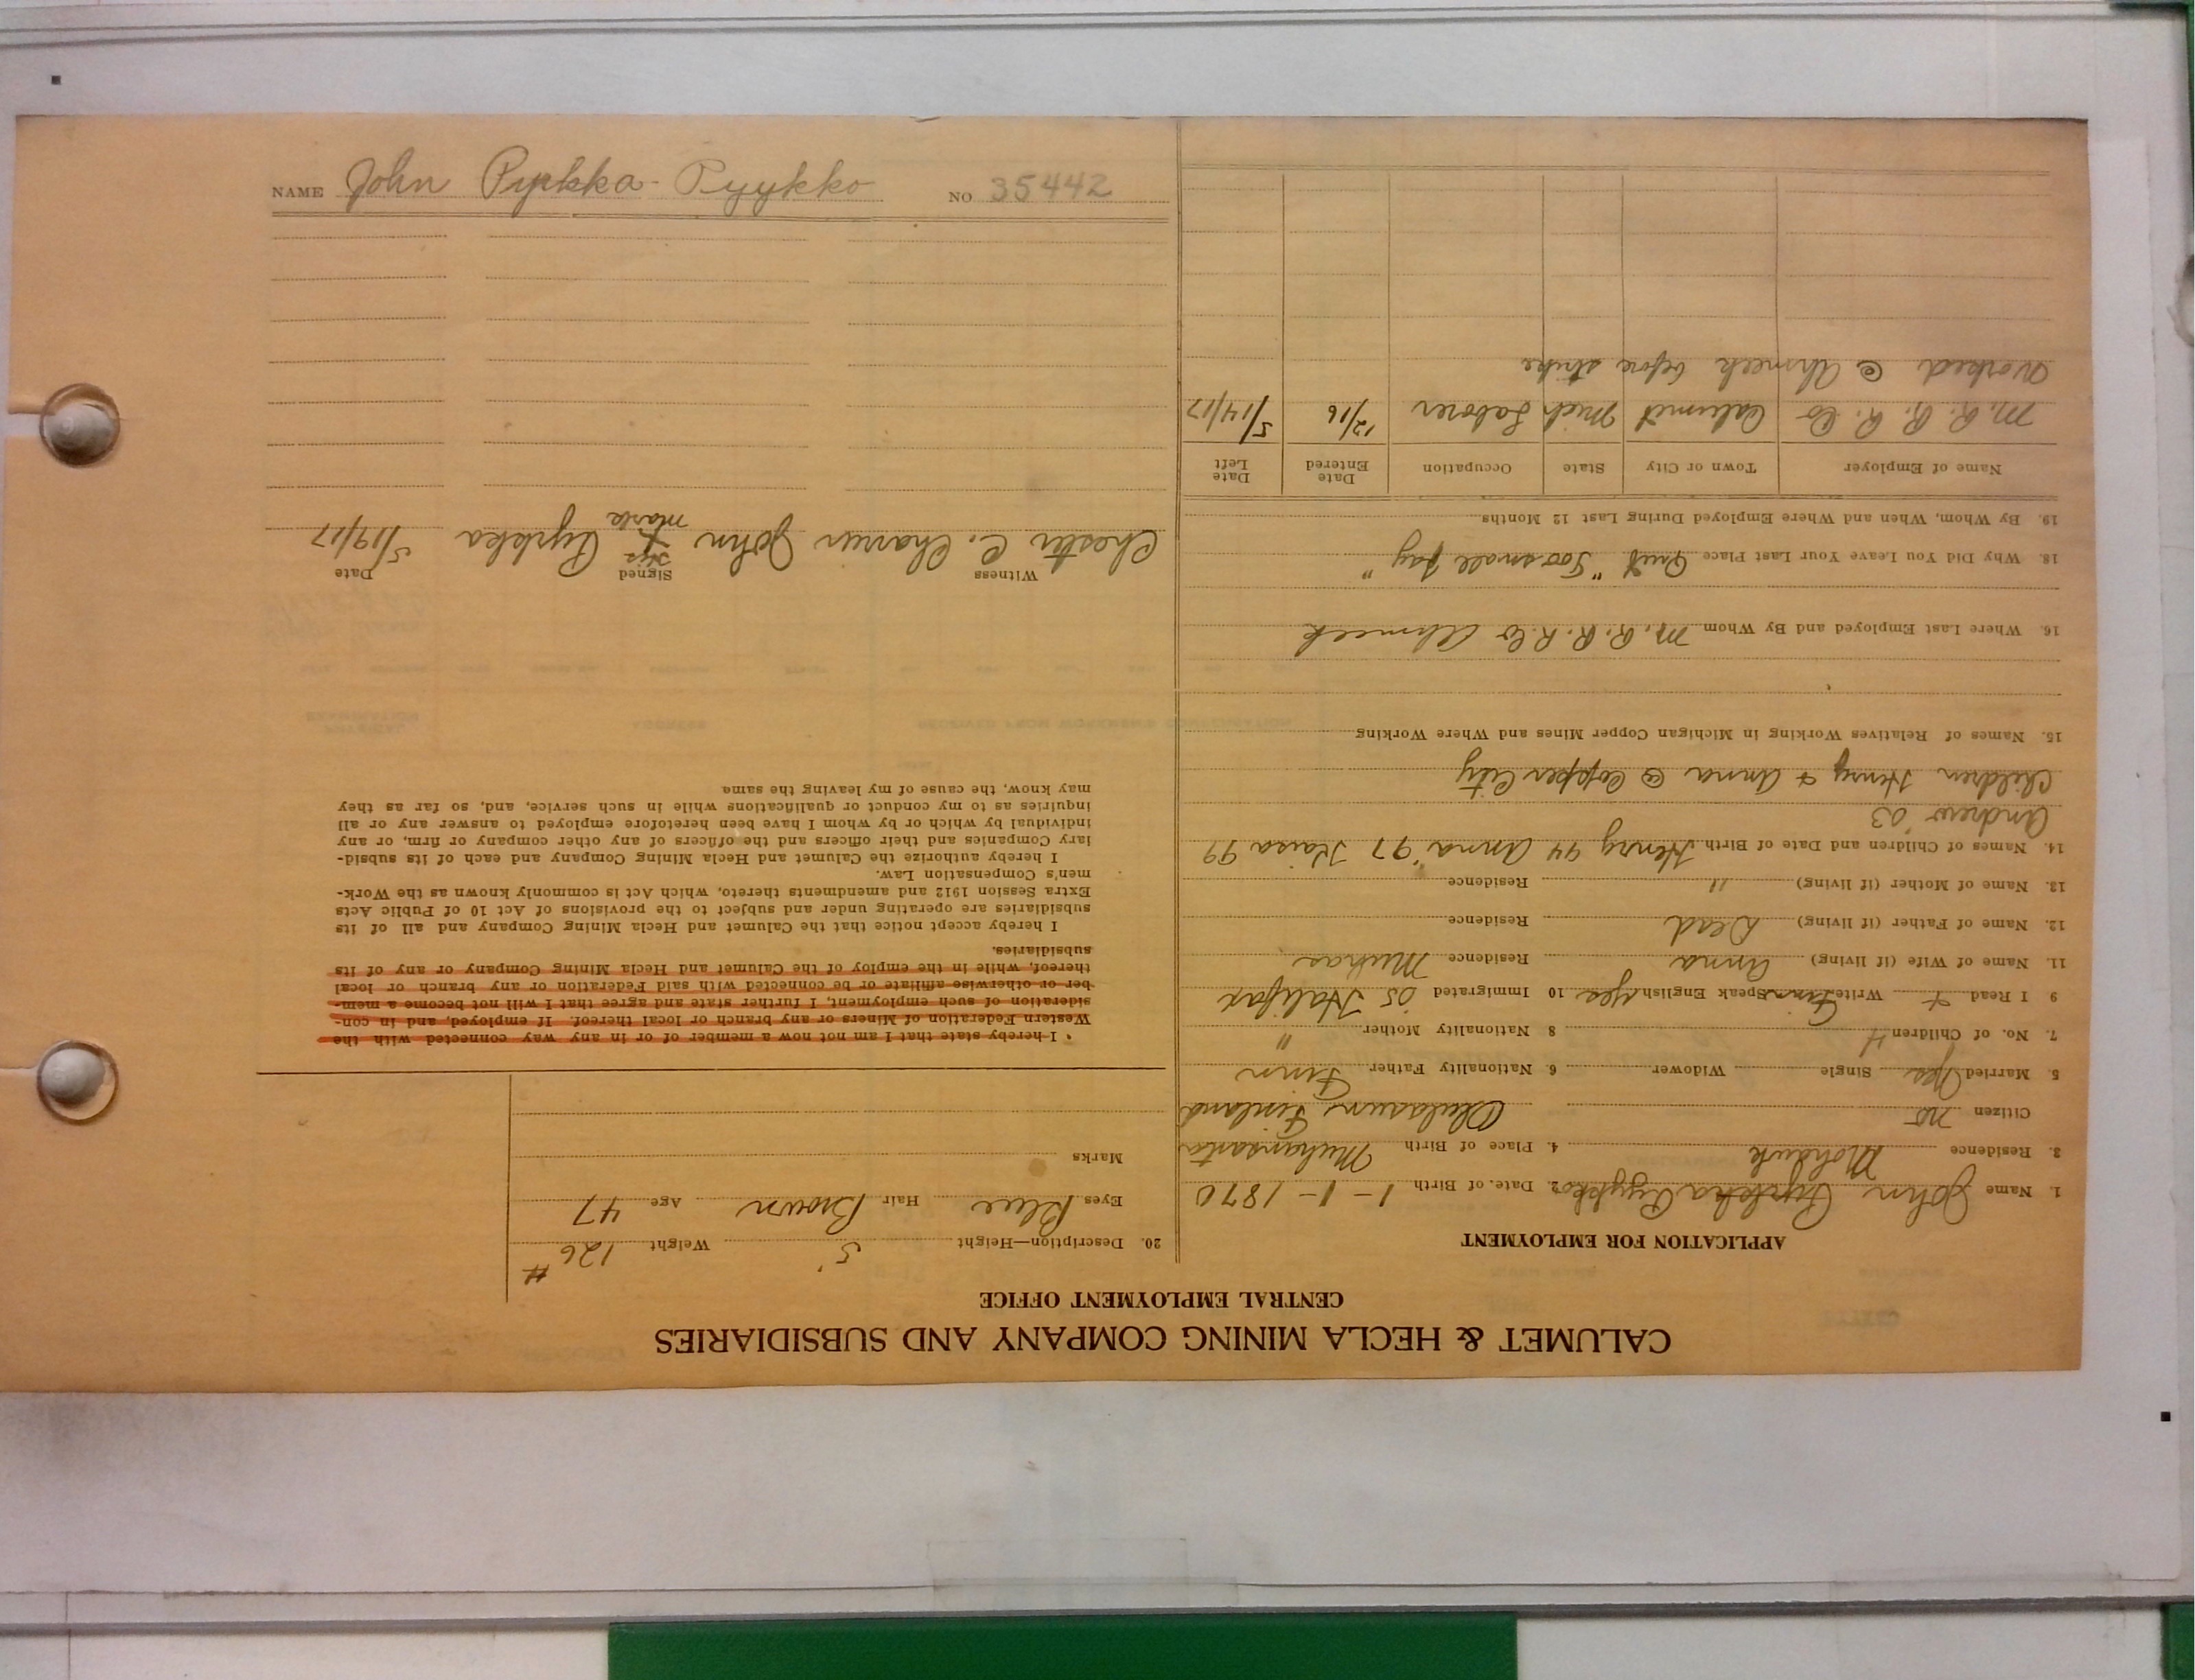 CALUMET & HECLA MINING COMPANY AND SUBSIDIARIES
CENTRAL EMPLOYMENT OFFICE
APPLICATION FOR EMPLOYMENT
1. Name John Pyrkka Pyykko 2. Date of Birth 1-1-1870
3. Residence Mohawk 4. Place of Birth
Citizen no Finland
5 Married Yes Single Widower 6. Nationality Father Finn
7. No. of Children 4 8 Nationality Mother "
9 I Read + Write Finn Speak English Yes 10 Immigrated 05 Halifax
11. Name of Wife (if living) Anna Residence
12. Name of Father (if living) Dead Residence
13. Name of Mother (if living) " Residence
14. Names of Children and Date of Birth Henry 94 Anna '97 Kaisa 99
Andrew '03
Children Henry & Anna @ Copper City
15. Names of Relatives Working in Michigan Copper Mines and Where Working
16. Where Last Employed and By Whom M. R. R. R. Co Ahmeek
18. Why Did You Leave Your Last Place Quit "Too small Pay"
19. By Whom, When and Where Employed During Last 12 Months
Name of Employer Town or City State Occupation Date Entered Date Left
M. R. R. R. Co Calumet Mich Laborer 12/16 5/14/17
Worked @ Ahmeek before strike
20. Description—Height 5' Weight 126 #
Eyes Blue Hair Brown Age 47
Marks
I hereby state that I am not now a member of or in any way connected with the
Western Federation of Miners or any branch or local thereof. If employed, and in con-
sideration of such employment, I further state and agree that I will not become a mem-
ber or otherwise affiliate or be connected with said Federation or any branch or local
thereof, while in the employ of the Calumet and Hecla Mining Company or any of its
subsidiaries.
I hereby accept notice that the Calumet and Hecla Mining Company and all of its
subsidiaries are operating under and subject to the provisions of Act 10 of Public Acts
Extra Session 1912 and amendments thereto, which Act is commonly known as the Work-
men's Compensation Law.
I hereby authorize the Calumet and Hecla Mining Company and each of its subsid-
iary Companies and their officers and the officers of any other company or firm, or any
individual by which or by whom I have been heretofore employed to answer any or all
inquiries as to my conduct or qualifications while in such service, and, so far as they
may know, the cause of my leaving the same
Witness Signed Date
Chester C. Charren John his X mark Pyrkka 5/19/17
NAME John Pyrkka - Pyykko NO 35442